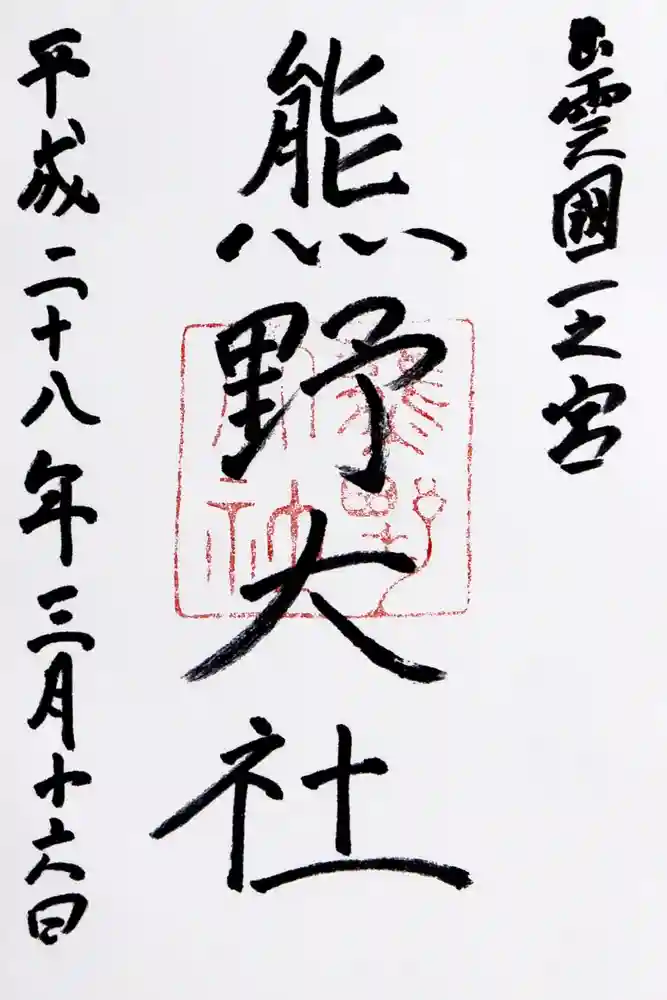 出雲國一之宮
熊野大社
平成二十八年三月十六日